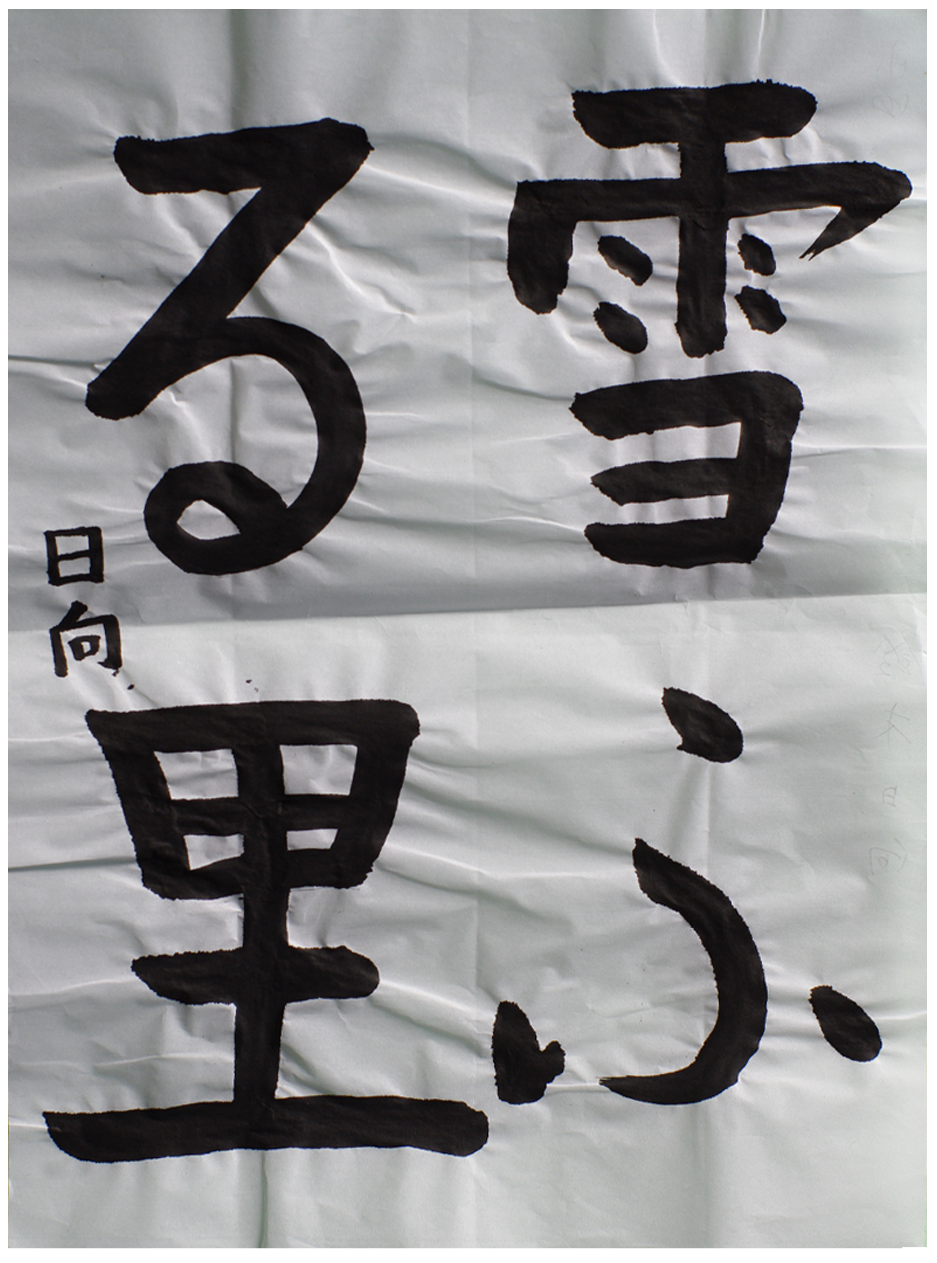 雪ふ
る里
日向